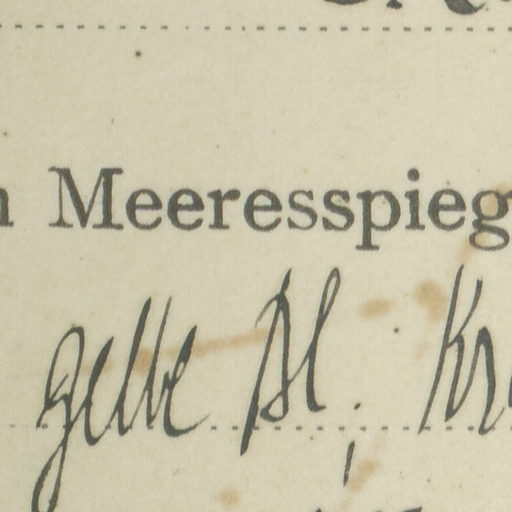 Meeresspieg
gelbe Bl. Kr